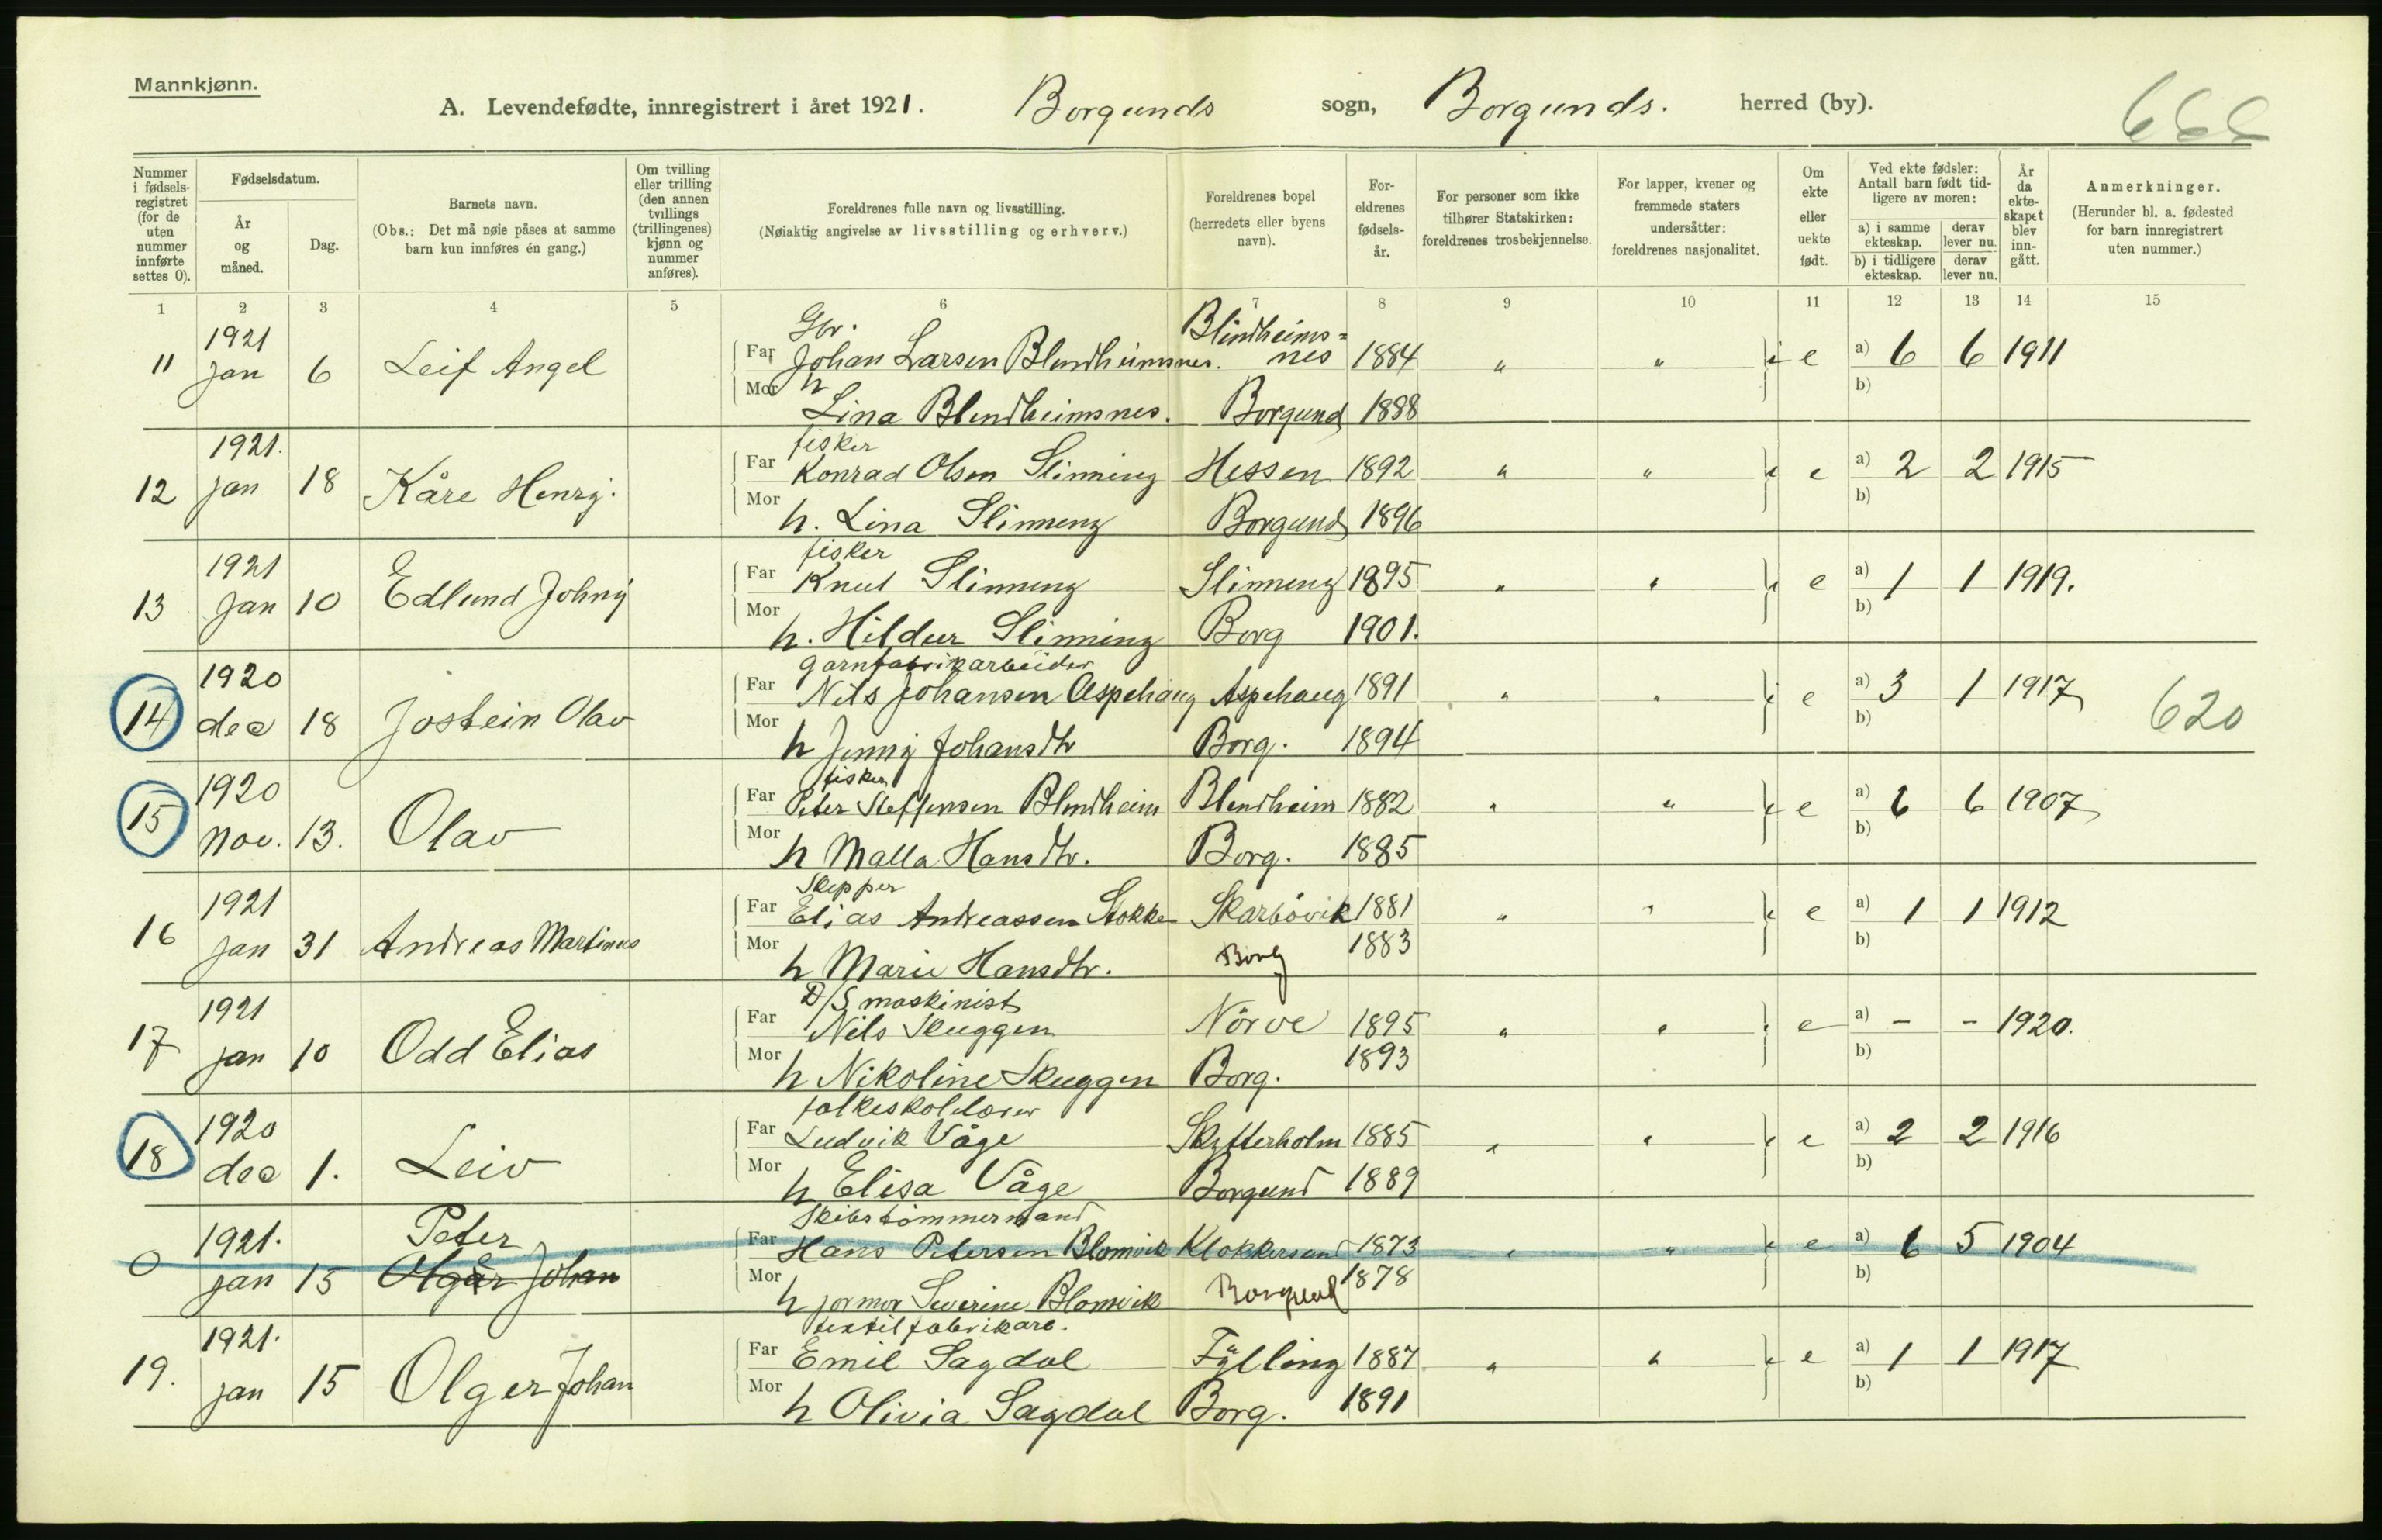 Mannkjønn.
A. Levendefødte, innregistrert i året 1921. Borgunds sogn, Borgunds. herred (by).
666
Nummer i fødselsregistret (for de uten nummer innførte settes 0).
Fødselsdatum.
År og måned.
Dag.
Barnets navn.
(Obs.: Det må nøie påses at samme barn kun innføres én gang.)
Om tvilling eller trilling (den annen tvillings (trillingenes) kjønn og nummer anføres).
Foreldrenes fulle navn og livsstilling.
(Nøiaktig angivelse av livsstilling og erhverv.)
Foreldrenes bopel (herredets eller byens navn).
Foreldrenes fødselsår.
For personer som ikke tilhører Statskirken: foreldrenes trosbekjennelse.
For lapper, kvener og fremmede staters undersåtter: foreldrenes nasjonalitet.
Om ekte eller uekte født.
Ved ekte fødsler: Antall barn født tidligere av moren:
a) i samme ekteskap. derav lever nu.
b) i tidligere ekteskap. derav lever nu.
År da ekteskapet blev inngått.
Anmerkninger.
(Herunder bl. a. fødested for barn innregistrert uten nummer.)
1 2 3 4 5 6 7 8 9 10 11 12 13 14 15
1921 Gbr. Blindheims=
11 jan 6 Leif Angel Far Johan Larsen Blindheimsnes. nes 1884 " " e a) 6 6 1911
Mor h Lina Blindheimsnes. Borgund 1888 b)
1921. fisker
12 jan 18 Kåre Henry. Far Konrad Olsen Slinning Hessen 1892 " " e a) 2 2 1915
Mor h. Lina Slinning Borgund 1896 b)
1921 fisker
13 Jan 10 Edlund Johny Far Knut Slinning Slinning 1895 " " e a) 1 1 1919.
Mor h. Hildur Slinning Borg 1901. b)
1920 garnfabrikarbeider
14 dec 18 Jostein Olav Far Nils Johansen Aspehaug Aspehaug 1891 " " e a) 3 1 1917 620
Mor h Jenny Johansdtr Borg. 1894 b)
1920 fisker
15 Nov. 13. Olav Far Peter Steffensen Blindheim Blindheim 1882 " " e a) 6 6 1907
Mor h Malla Hansdtr. Borg. 1885 b)
1921 Skipper
16 jan 31 Andreas Martinus Far Elias Andreassen Stokke Skarbövik 1881 " " e a) 1 1 1912
Mor h Marie Hansdtr. Borg 1883 b)
1921 D/S maskinist
17 jan 10 Odd Elias Far Nils Skuggen Nörve 1895 " " e a) - - 1920.
Mor h Nikoline Skuggen Borg. 1893 b)
1920 folkeskolelærer
18 dec 1. Leiv Far Ludvik Våge Skytterholm 1885 " " e a) 2 2 1916
Mor h Elisa Våge Borgund 1889 b)
1921. Peter Skibstömmermand
0 jan 15 Olgar Johan Far Hans Petersen Blomvik Klokkersund 1873 " " e a) 6 5 1904
Mor h jormor Severine Blomvik Borgund 1878 b)
1921. textilfabrikarb.
19. jan 15 Olger Johan Far Emil Sagdal Fylling 1887 " " e a) 1 1 1917
Mor h Olivia Sagdal Borg. 1891 b)